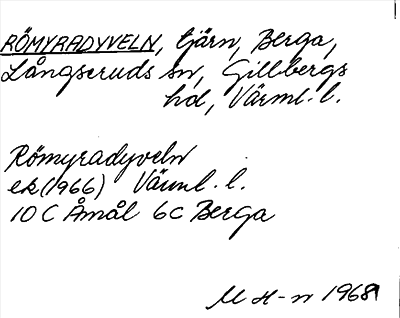 RÖMYRADYVELN, tjärn, Berga,
Långseruds sn, Gillbergs
hd, Värml. l.
Römyradyveln
ek (1966) Värml. l.
10 C Åmål 6C Berga
M H-n 1968